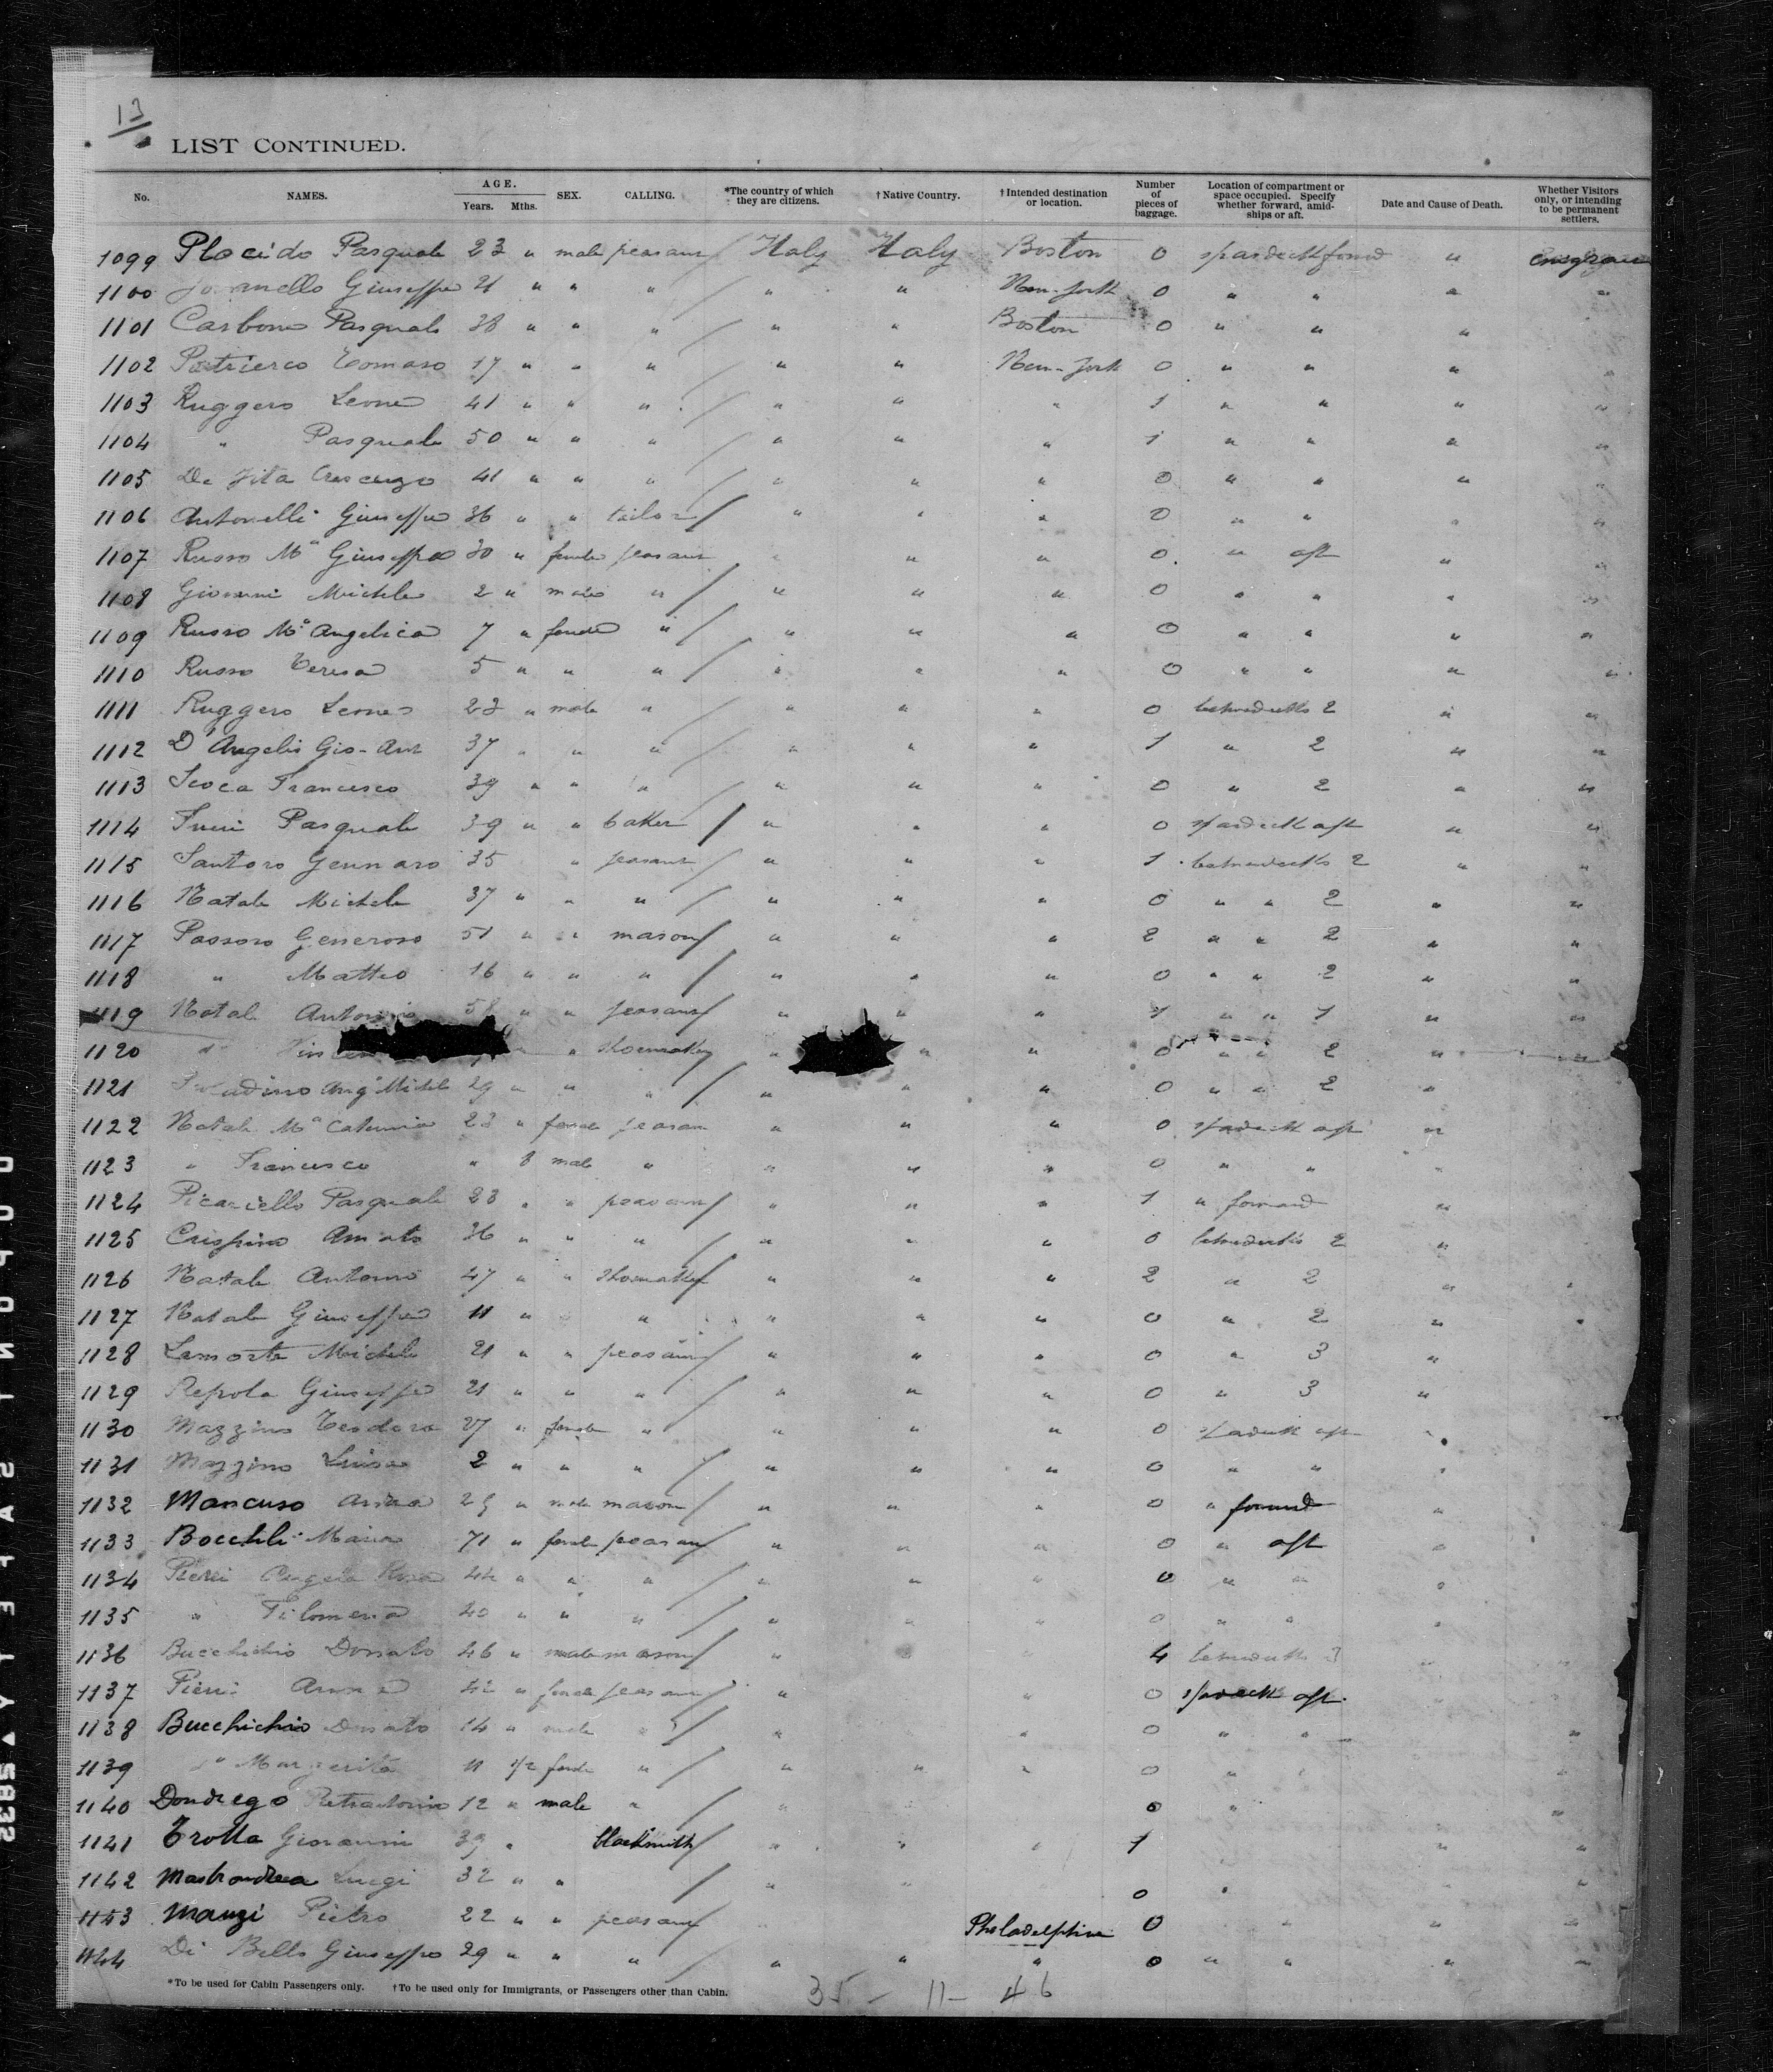 13
LIST CONTINUED.
No. NAMES. AGE. Years. Mths. SEX. CALLING. *The country of which they are citizens. †Native Country. †Intended destination or location. Number of pieces of baggage. Location of compartment or space occupied. Specify whether forward, amidships or aft. Date and Cause of Death. Whether Visitors only, or intending to be permanent settlers.
1099 Placido Pasquale 23 " male peasant Italy Italy Boston 0 "
1100 Giuseppe 21 " " " " " New-York 0 " " " "
1101 Carbone Pasquale 38 " " " " " Boston 0 " " "
1102 Tomaso 17 " " " " " New-York 0 " " " "
1103 Ruggero Leone 41 " " " " " " 1 " " " "
1104 " Pasquale 50 " " " " " " 1 " " " "
1105 De Vita Crescenzo 41 " " " " " " 0 " " " "
1106 Antonelli Giuseppe 36 " " tailor " " " 0 " " " "
1107 Russo Mª Giuseppa 30 " female peasant " " " 0 " aft " "
1108 Giovanni Michele 2 " male " " " " 0 " " " "
1109 Russo Mª Angelica 7 " female " " " " 0 " " " "
1110 Russo Teresa 5 " " " " " " 0 " " " "
1111 Ruggero Leone 23 " male " " " " 0 2 " "
1112 D'Angelis Gio-Ant 37 " " " " " " 1 " 2 " "
1113 Francesco 39 " " " " " " 0 " 2 " "
1114 Pasquale 39 " " baker " " " 0 spardeck aft " "
1115 Santoro Gennaro 35 " peasant " " " 1 2 " "
1116 Natale Michele 37 " " " " " " 0 " " 2 " "
1117 Generoso 51 " " mason " " " 2 " " 2 " "
1118 " Matteo 16 " " " " " " 0 " " 2 " "
1119 Natale Antonio 58 " " peasant " " " 1 " " 1 " "
1120 " " shoemaker " " " 0 " " 2 " "
1121 Michele 29 " " " " " " 0 " " 2 "
1122 Natale Mª 23 " female peasant " " " 0 spardeck aft "
1123 " Francesco " 8 male " " " " 0 " " "
1124 Picariello Pasquale 28 " " peasant " " " 1 " forward "
1125 Crispino Amato 36 " " " " " " 0 2 "
1126 Natale Antonio 47 " " shoemaker " " " 2 " 2 "
1127 Natale Giuseppe 11 " " " " " 0 " 2 "
1128 Lamorte Michele 21 " " peasant " " " 0 " 3 "
1129 Repola Giuseppe 21 " " " " " " 0 " 3 "
1130 Mazzino Teodora 27 " female " " " " 0 spardeck aft "
1131 Mazzino Luisa 2 " " " " " " 0 " " "
1132 Mancuso 29 " male mason " " " 0 " forward "
1133 Maria 71 " female peasant " " " 0 " aft "
1134 Pierri Angela Rosa 44 " " " " " " 0 " " "
1135 " Filomena 40 " " " " " " 0 " " "
1136 Bucchichio Donato 46 " male mason " 4 3
1137 Pierri 42 " female peasant " " 0 spardeck aft
1138 Bucchichio Donato 14 " male " " " 0 " " "
1139 " Margerita 11 1/2 female " " " " 0 "
1140 Dondrego 12 " male " 0 "
1141 Trotta Giovanni 39 " blacksmith " 1 " "
1142 Mastrandrea Luigi 32 " " " 0 "
1143 Manzi Pietro 22 " " peasant Philadelphia 0 " "
1144 Di Bello Giuseppe 29 " " " " " " 0 " " " "
*To be used for Cabin Passengers only. †To be used only for Immigrants, or Passengers other than Cabin.
35 - 11 - 46